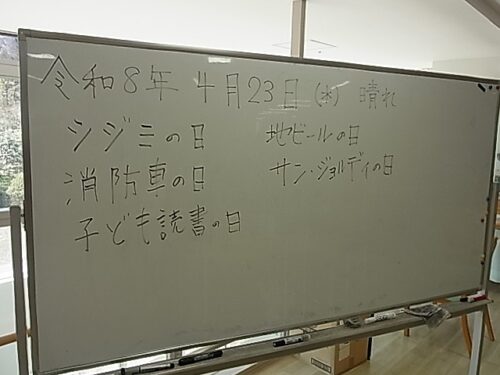 令和8年 4月23日 (木) 晴れ
シジミの日
消防車の日
子ども読書の日
地ビールの日
サン・ジョルディの日